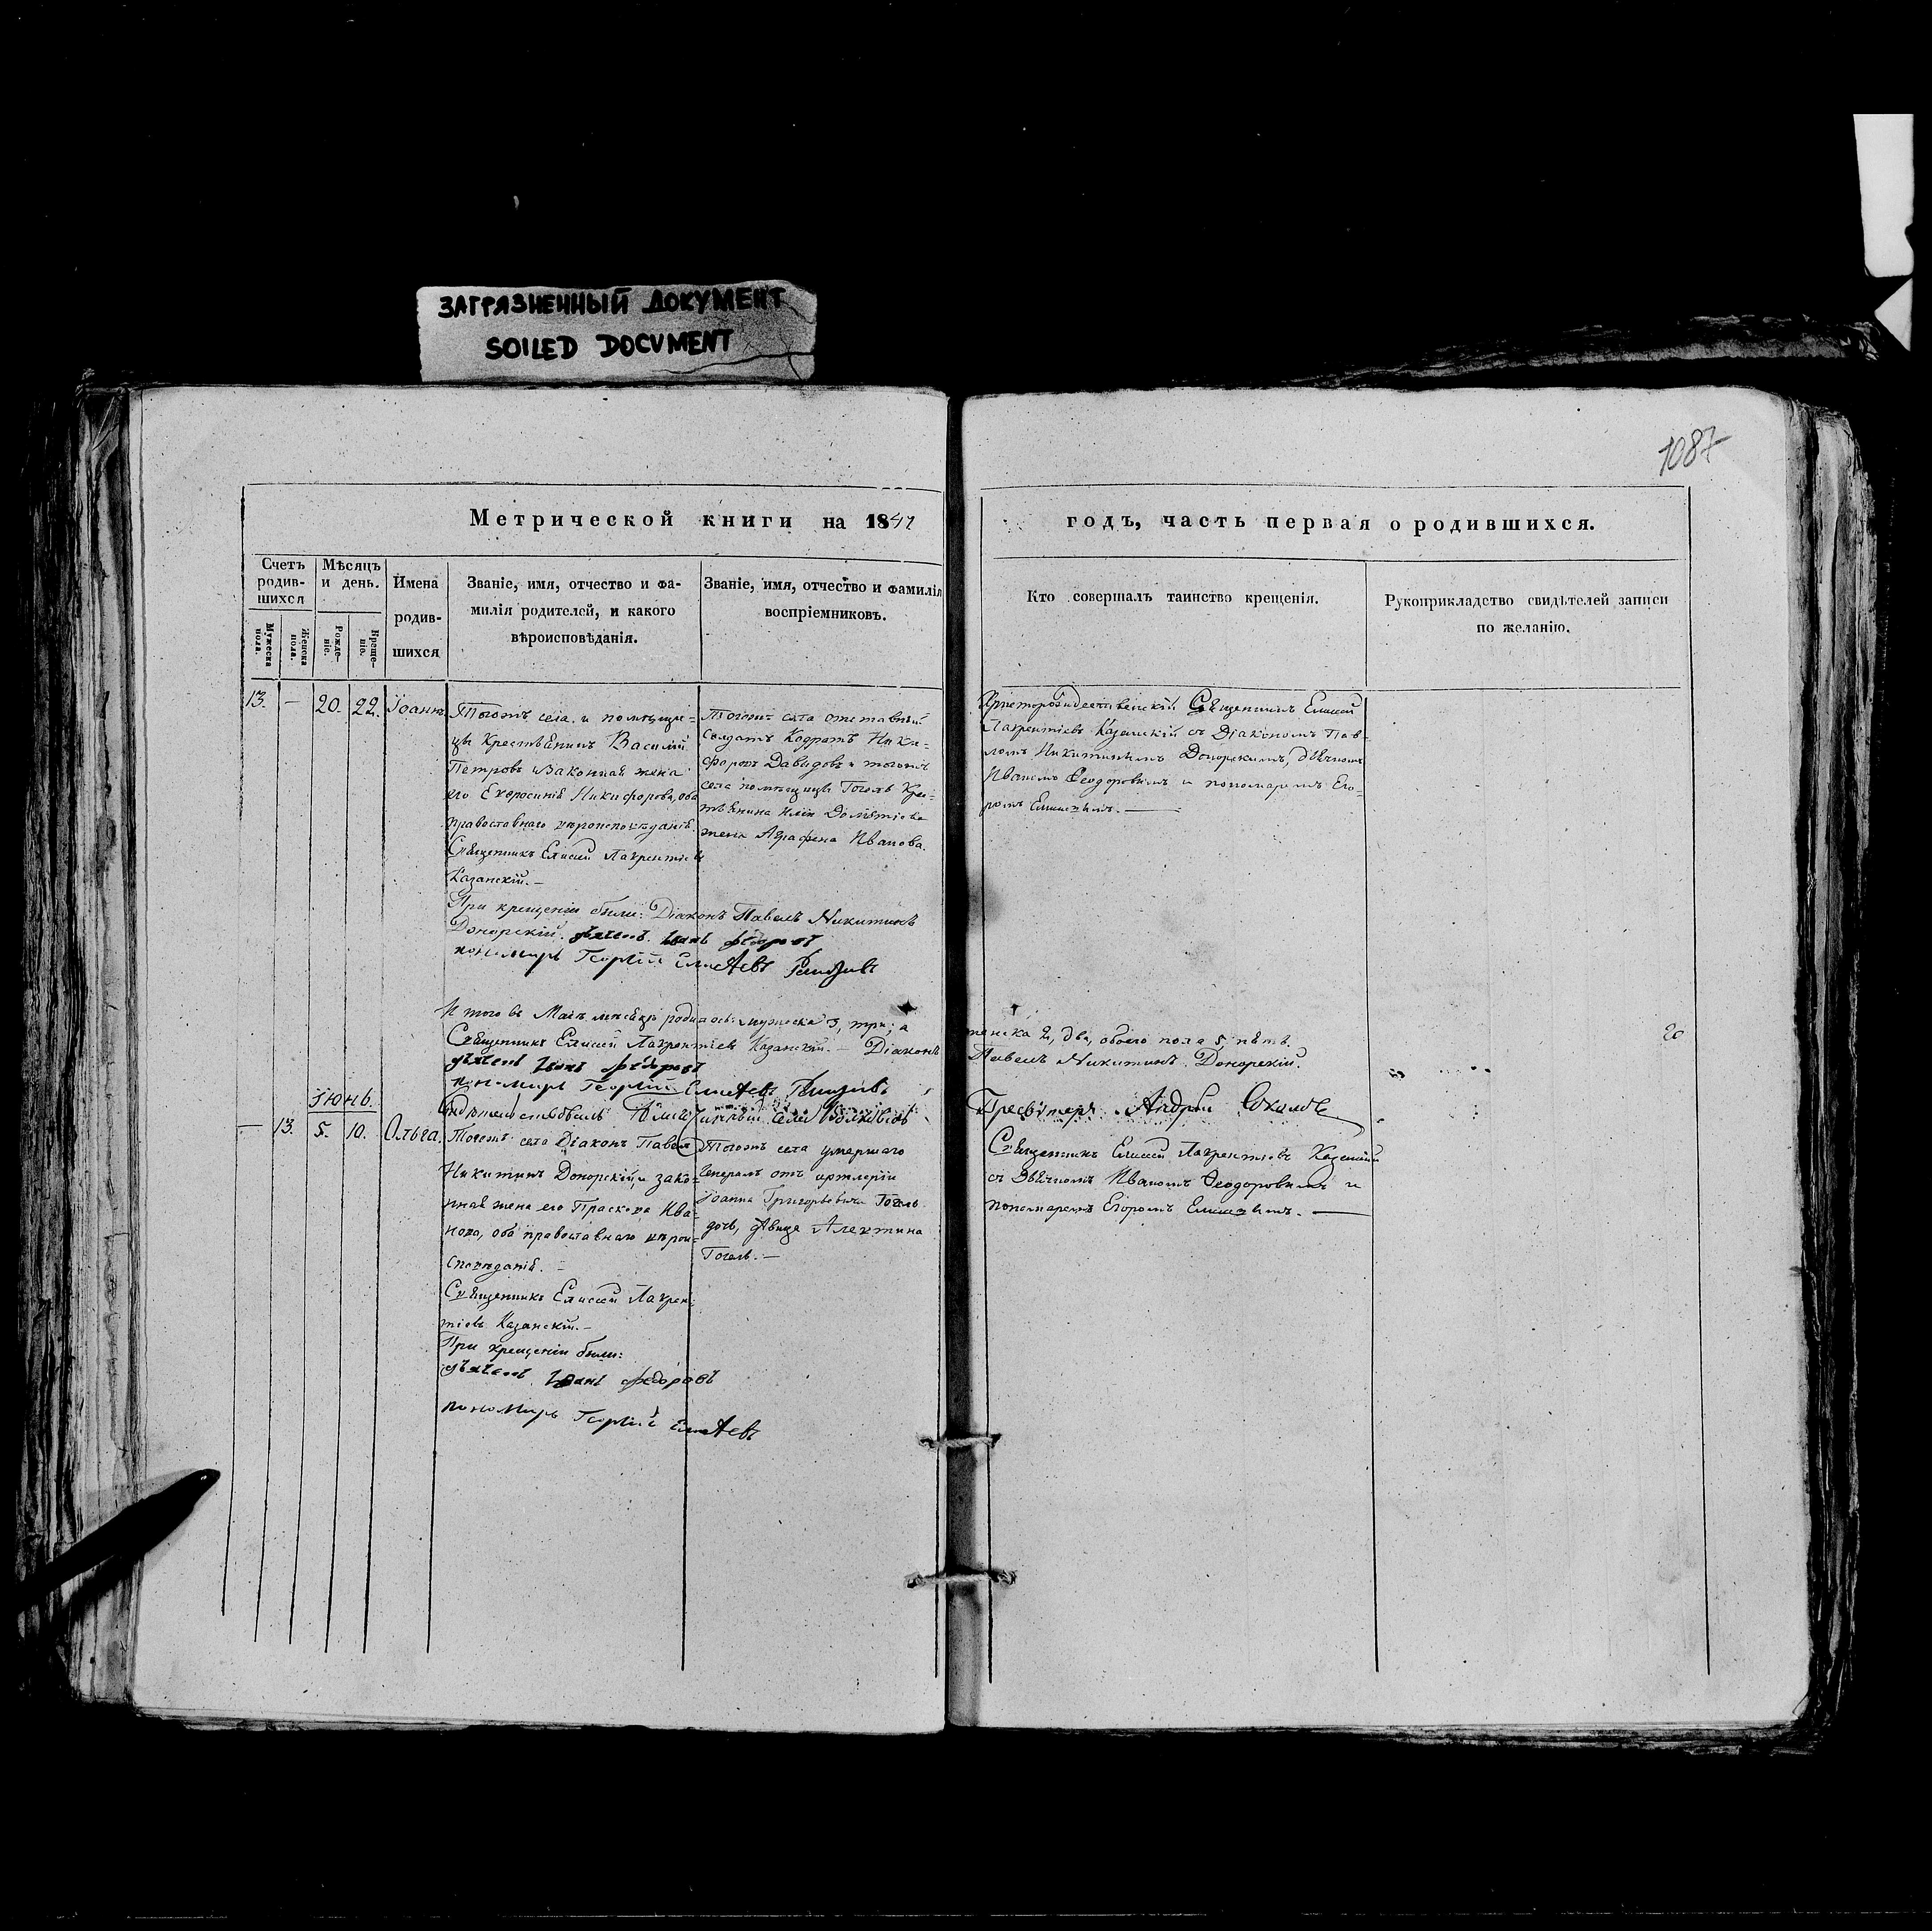 ЗАГРЯЗНЕННЫЙ ДОКУМЕНТ
SOILED DOCUMENT
1087
Метрической книги на 1841
годъ, часть первая о родившихся.
Счетъ родив-шихся
Мужеска пола.
Женска пола.
Мѣсяцъ и день.
Рожде-ніе.
Креще-ніе.
Имена
родив-
шихся
Званіе, имя, отчество и фа-
милія родителей, и какого
вѣроисповѣданія.
Званіе, имя, отчество и фамилія
воспріемниковъ.
Кто совершалъ таинство крещенія.
Рукоприкладство свидѣтелей записи
по желанію.
13. — 20. 22. Іоаннъ
Тогожъ села и помѣщи-
цы крестьянинъ Василій
Петровъ и законная жена
его Евфросинія Никифорова, оба
православнаго вѣроисповѣданія.
Священникъ Елисей Лаврентіевъ
Казанскій.—
При крещеніи были: Діаконъ Павелъ Никитинъ
Донорскій. дьячокъ Иванъ Федоровъ
пономарь Георгій Елисѣевъ
Тогожъ села отставный
солдатъ Кодратъ Ники-
форовъ Давыдовъ и тогожъ
села помѣщицы Гогель кре-
стьянина Иліи Дометіева
жена Аграфена Иванова.
Христорождественскій Священникъ Елисей
Лаврентіевъ Казанскій съ Діакономъ Пав-
ломъ Никитинымъ Донорскимъ, дьячкомъ
Иваномъ Ѳеодоровымъ и пономаремъ Его-
ромъ Елисѣевымъ.—
Итого въ Маѣ мѣсяцѣ родилось: мужеска 3, три; а
женска 2, два, обоего пола 5, пять.
20
Священникъ Елисей Лаврентіевъ Казанскій.— Діаконъ
Павелъ Никитинъ Донорскій.
дьячокъ Иванъ Федоровъ
пономарь Георгій Елисѣевъ
Іюнь.
села
Пресвитеръ Андрей Соколовъ
— 13. 5. 10. Ольга.
Тогожъ села Діаконъ Павелъ
Никитинъ Донорскій, и зако-
нная жена его Праскева Ива-
нова, оба православнаго вѣрои-
споведанія.—
Священникъ Елисей Лаврен-
тіевъ Казанскій.—
При крещеніи были:
дьячокъ Иванъ Федоровъ
пономарь Георгій Елисѣевъ
Тогожъ села умершаго
Генерала отъ артилеріи
Іоанна Григорьевича Гогель
дочь, дѣвица Алектина
Гогель.—
Священникъ Елисей Лаврентіевъ Казанскій
съ дьячкомъ Иваномъ Ѳеодоровымъ и
пономаремъ Егоромъ Елисѣевымъ.—